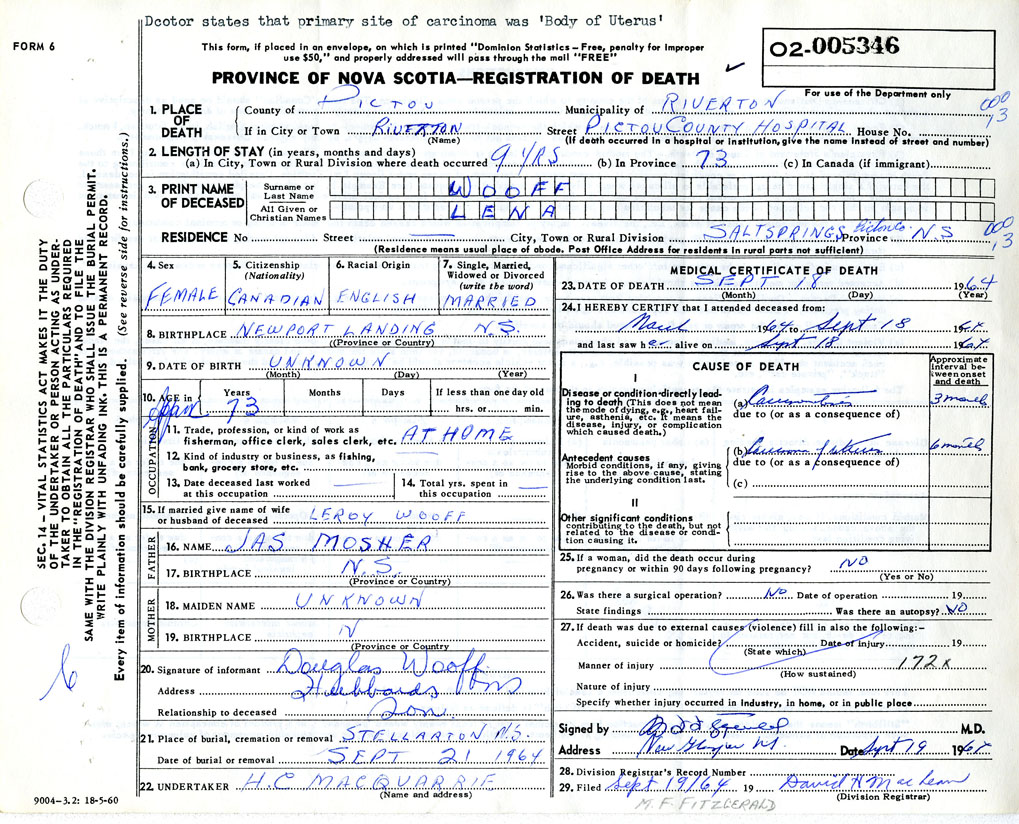 Dcotor states that primary site of carcinoma was 'Body of Uterus'
FORM 6
This form, if placed in an envelope, on which is printed "Dominion Statistics – Free, penalty for improper
use $50," and properly addressed will pass through the mail "FREE"
02-005346
For use of the Department only
PROVINCE OF NOVA SCOTIA—REGISTRATION OF DEATH
000
13
1. PLACE OF DEATH
County of PICTOU Municipality of RIVERTON
If in City or Town RIVERTON Street PICTOU COUNTY HOSPITAL House No.
(Name) (If death occurred in a hospital or institution, give the name instead of street and number)
2. LENGTH OF STAY (in years, months and days)
(a) In City, Town or Rural Division where death occurred 9 YRS (b) In Province 73 (c) In Canada (if immigrant)
3. PRINT NAME OF DECEASED
Surname or Last Name WOOFF
All Given or Christian Names LENA
RESIDENCE No Street City, Town or Rural Division SALTSPRINGS Pictou Co Province N.S
000
13
(Residence means usual place of abode. Post Office Address for residents in rural parts not sufficient)
4. Sex FEMALE
5. Citizenship (Nationality) CANADIAN
6. Racial Origin ENGLISH
7. Single, Married, Widowed or Divorced (write the word) MARRIED
8. BIRTHPLACE NEWPORT LANDING N.S.
(Province or Country)
9. DATE OF BIRTH UNKNOWN
(Month) (Day) (Year)
10. AGE in Years 73 Months Days If less than one day old
hrs. or min.
OCCUPATION
11. Trade, profession, or kind of work as
fisherman, office clerk, sales clerk, etc. AT HOME
12. Kind of industry or business, as fishing,
bank, grocery store, etc.
13. Date deceased last worked
at this occupation
14. Total yrs. spent in
this occupation
15. If married give name of wife
or husband of deceased LEROY WOOFF
FATHER
16. NAME JAS MOSHER
17. BIRTHPLACE N.S.
(Province or Country)
MOTHER
18. MAIDEN NAME UNKNOWN
19. BIRTHPLACE
(Province or Country)
20. Signature of informant Douglas Wooff
Address Hubbards NS
Relationship to deceased Son.
21. Place of burial, cremation or removal STELLARTON N.S.
Date of burial or removal SEPT 21 1964
22. UNDERTAKER H.C MACQUARRIE
(Name and address)
MEDICAL CERTIFICATE OF DEATH
23. DATE OF DEATH SEPT 18 1964
(Month) (Day) (Year)
24. I HEREBY CERTIFY that I attended deceased from:
March 1964 to Sept 18 1964
and last saw her alive on Sept 18 1964
CAUSE OF DEATH
Approximate interval between onset and death
I
Disease or condition directly leading to death (This does not mean
the mode of dying, e.g., heart failure, asthenia, etc. It means the
disease, injury, or complication
which caused death.)
(a) 3 month
due to (or as a consequence of)
Antecedent causes
Morbid conditions, if any, giving
rise to the above cause, stating
the underlying condition last.
(b) Carcinoma of Uterus 6 month
due to (or as a consequence of)
(c)
II
Other significant conditions
contributing to the death, but not
related to the disease or condition causing it.
25. If a woman, did the death occur during
pregnancy or within 90 days following pregnancy? NO
(Yes or No)
26. Was there a surgical operation? NO. Date of operation 19
State findings Was there an autopsy? NO
27. If death was due to external causes (violence) fill in also the following:—
Accident, suicide or homicide? Date of injury 19
(State which)
Manner of injury 172x
(How sustained)
Nature of injury
Specify whether injury occurred in industry, in home, or in public place
Signed by M.D.
Address New Glasgow Date Sept 19 1964
28. Division Registrar's Record Number
29. Filed Sept 19/64 19 David H MacLean
(Division Registrar)
M. F. FITZGERALD
SEC. 14 – VITAL STATISTICS ACT MAKES IT THE DUTY
OF THE UNDERTAKER OR PERSON ACTING AS UNDERTAKER TO OBTAIN ALL THE PARTICULARS REQUIRED
IN THE "REGISTRATION OF DEATH" AND TO FILE THE
SAME WITH THE DIVISION REGISTRAR WHO SHALL ISSUE THE BURIAL PERMIT.
WRITE PLAINLY WITH UNFADING INK. THIS IS A PERMANENT RECORD.
Every item of information should be carefully supplied. (See reverse side for instructions.)
9004–3.2: 18-5-60